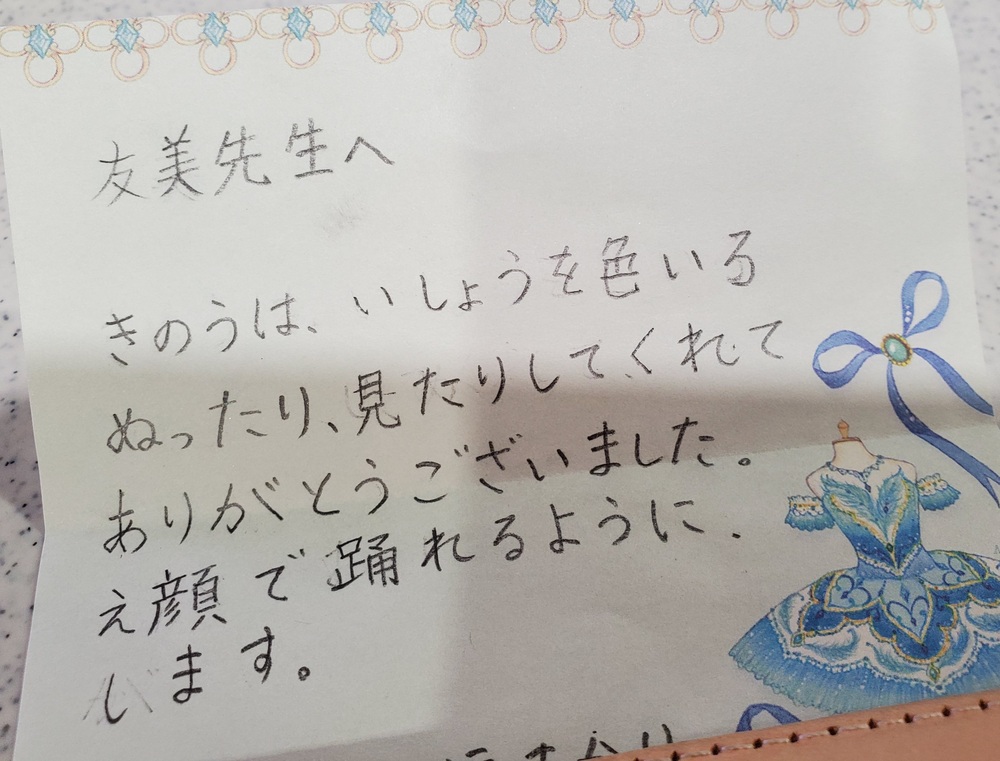 友美先生へ
きのうは、いしょうを色いろ
ぬったり、見たりしてくれて
ありがとうございました。
え顔で踊れるように.
します。